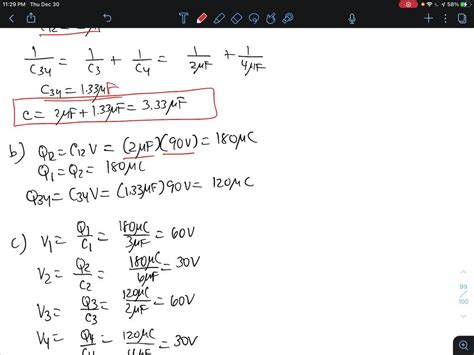 11:29 PM Thu Dec 30
58%
1/C34 = 1/C3 + 1/C4 = 1/2μF + 1/4μF
C34 = 1.33μF
C = 2μF + 1.33μF = 3.33μF
b) Q12 = C12V = (2μF)(90V) = 180μC
Q1 = Q2 = 180μC
Q34 = C34V = (1.33μF)90V = 120μC
c) V1 = Q1/C1 = 180μC/3μF = 60V
V2 = Q2/C2 = 180μC/6μF = 30V
V3 = Q3/C3 = 120μC/2μF = 60V
V4 = Q4/C4 = 120μC/4μF = 30V
99
100